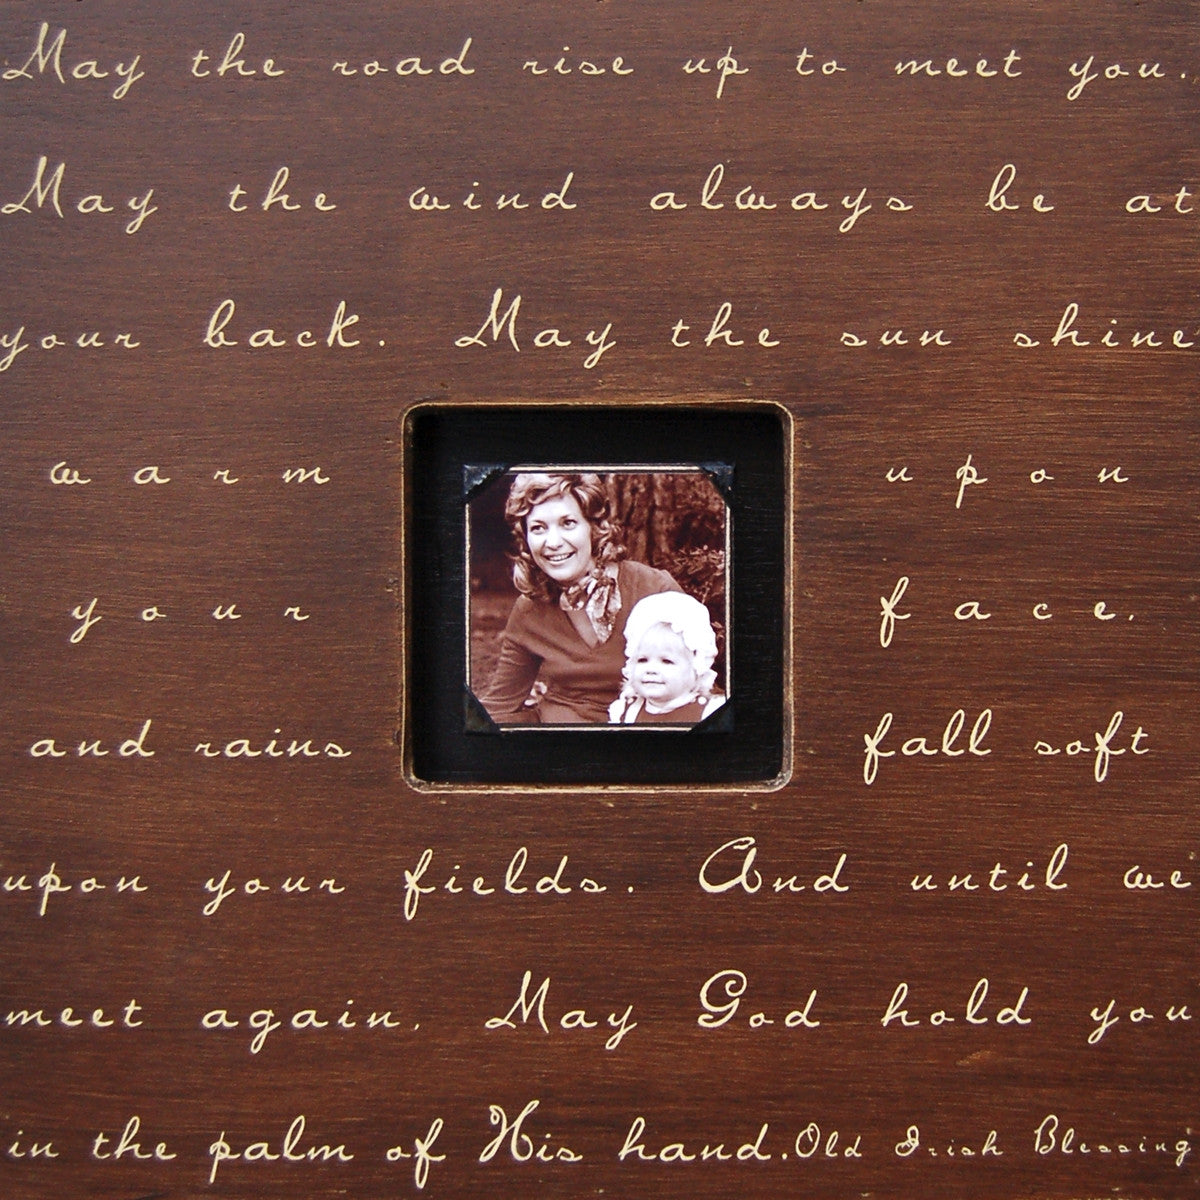 May the road rise up to meet you.
May the wind always be at
your back. May the sun shine
warm upon
your face.
and rains fall soft
upon your fields. And until we
meet again. May God hold you
in the palm of His hand. Old Irish Blessing